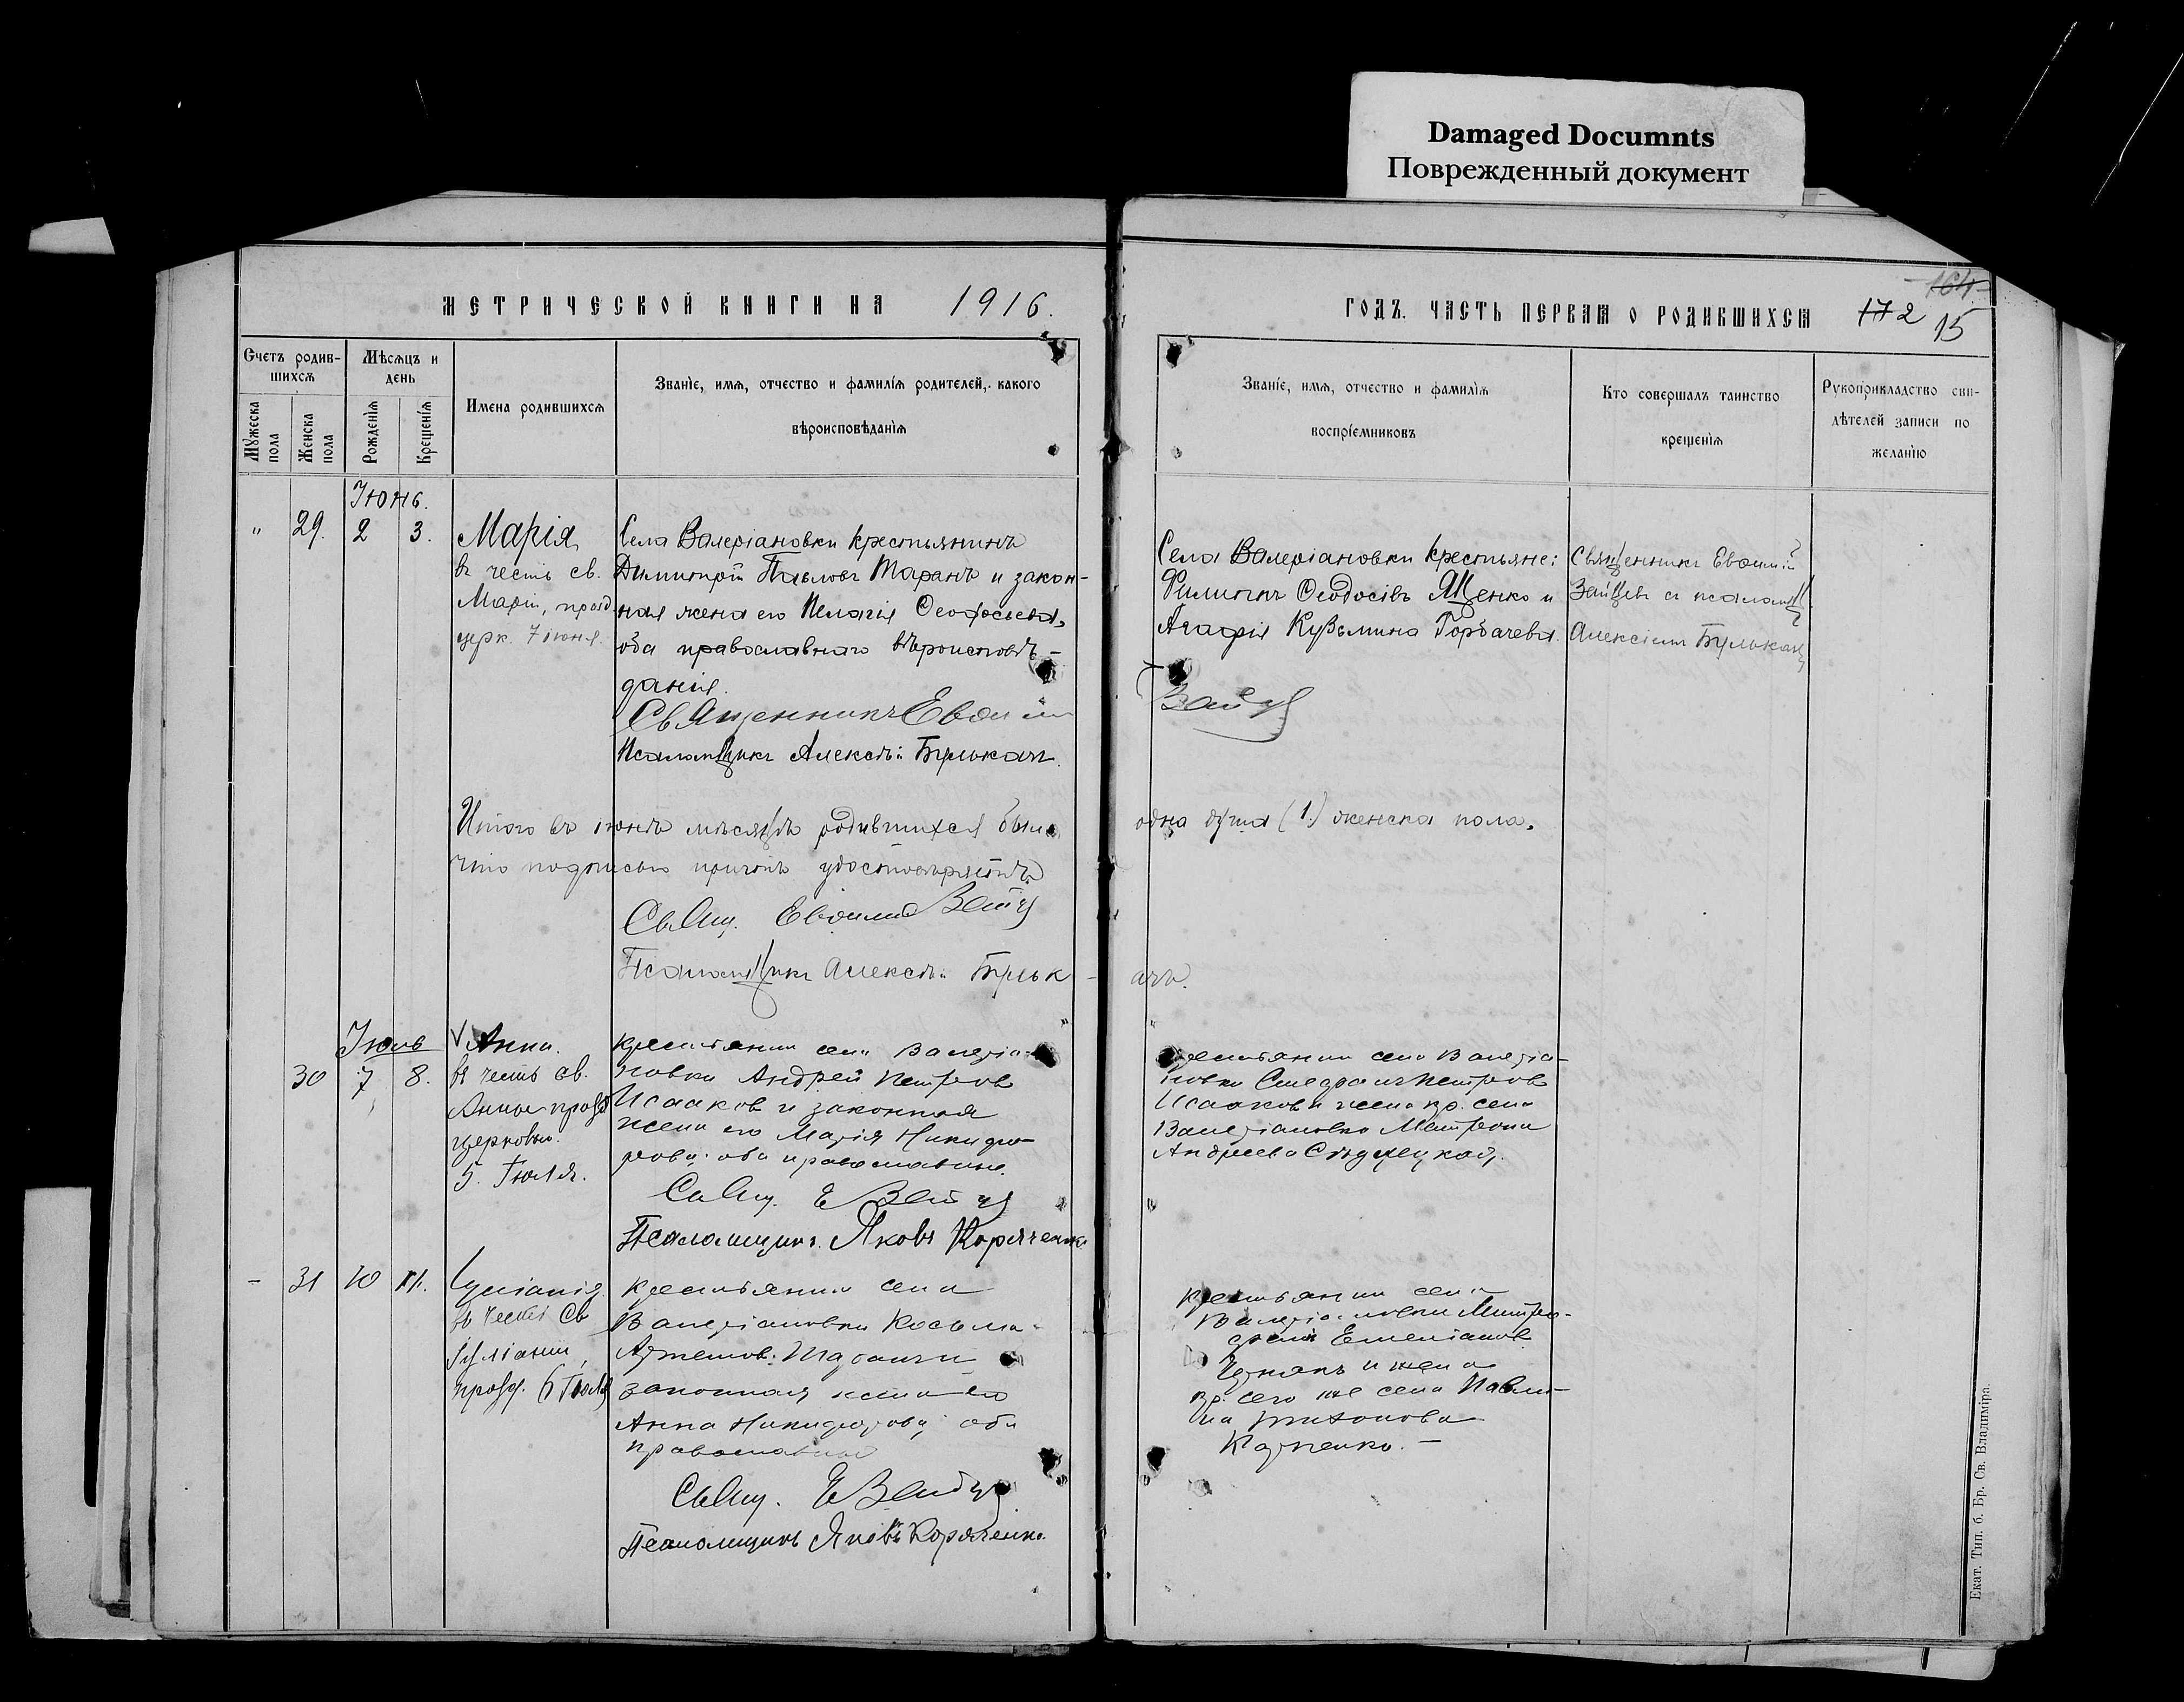 Damaged Documnts
Поврежденный документ
МЕТРИЧЕСКОЙ КНИГИ НА 1916.
ГОДЪ. ЧАСТЬ ПЕРВАЯ О РОДИВШИХСЯ
164
172
15
Счетъ родив-
шихся
Мужеска пола
Женска пола
Мѣсяцъ и
день
Рожденія
Крещенія
Имена родившихся
Званіе, имя, отчество и фамилія родителей, какого
вѣроисповѣданія
Званіе, имя, отчество и фамилія
воспріемниковъ
Кто совершалъ таинство
крещенія
Рукоприкладство сви-
дѣтелей записи по
желанію
Іюнь.
" 29. 2 3.
Марія
въ честь св.
Маріи, празд.
церк. 7 іюня.
Села Валеріановки крестьянинъ
Димитрій Павловъ Таранъ и закон-
ная жена его Пелагія Ѳеодосьева,
оба православнаго вѣроисповѣ-
данія.
Священникъ Евѳимій
Псаломщикъ Алексѣй Булькачъ
Села Валеріановки крестьяне:
Филиппъ Ѳеодосіевъ Ященко и
Агафія Кузьмина Горбачева.
Зайцъ
Священникъ Евѳимій
Зайцевъ съ псаломщ.
Алексіемъ Булькач
Итого въ іюнѣ мѣсяцѣ родившихся была
одна душа (1.) женска пола.
что подписью причтъ удостовѣряетъ
Свящ. Евѳимій Зайцъ
Псаломщикъ Алексѣй Бульк - ачъ.
Іюль
30 7 8.
Анна.
въ честь св.
Анны празд
церковью.
5. Іюля.
крестьянин села Валеріа-
новки Андрей Петров
Исааков и законная
жена его Марія Никифо-
рова; оба православные.
Свящ. Е Зайцъ
Псаломщикъ. Яковъ Коряченко
крестьянин села Валеріа-
новки Спиридон Петров
Исааков и жена кр. села
Валеріановки Матрона
Андреева
- 31 10 11.
Іуліанія.
въ честь Св
Іуліаніи,
празд. 6 Іюля
крестьянин села
Валеріановки Косьма
Артемов.
законная жена его
Анна Никифорова; оба
православные
Свящ. Е Зайцъ
Псаломщикъ Яковъ Коряченко.
крестьянин села
Валеріановки Митро-
фан Емельянов
и жена
кр. сего же села Павли-
на Тихонова
Карпенко. -
Екат. Тип. б. Бр. Св. Владиміра.